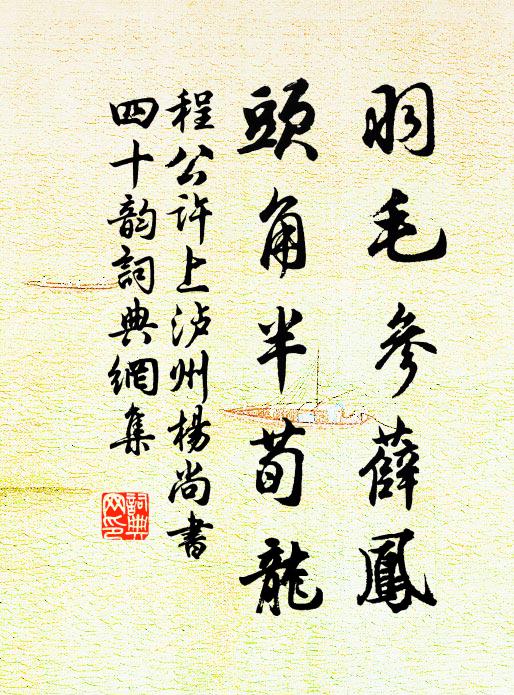 羽毛參薛鳳
頭角半荀龍
程公許上泸州楊尚書
四十韵詞典網集
詞典网印